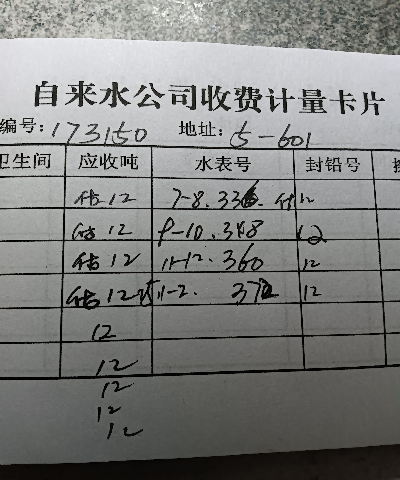 自来水公司收费计量卡片
编号:173150 地址:5-601
卫生间 应收吨 水表号 封铅号
估12 7-8.336 估12
估12 9-10.348 12
估12 11-12.360 12
估12 1-2. 372 12
12
12
12
12
12